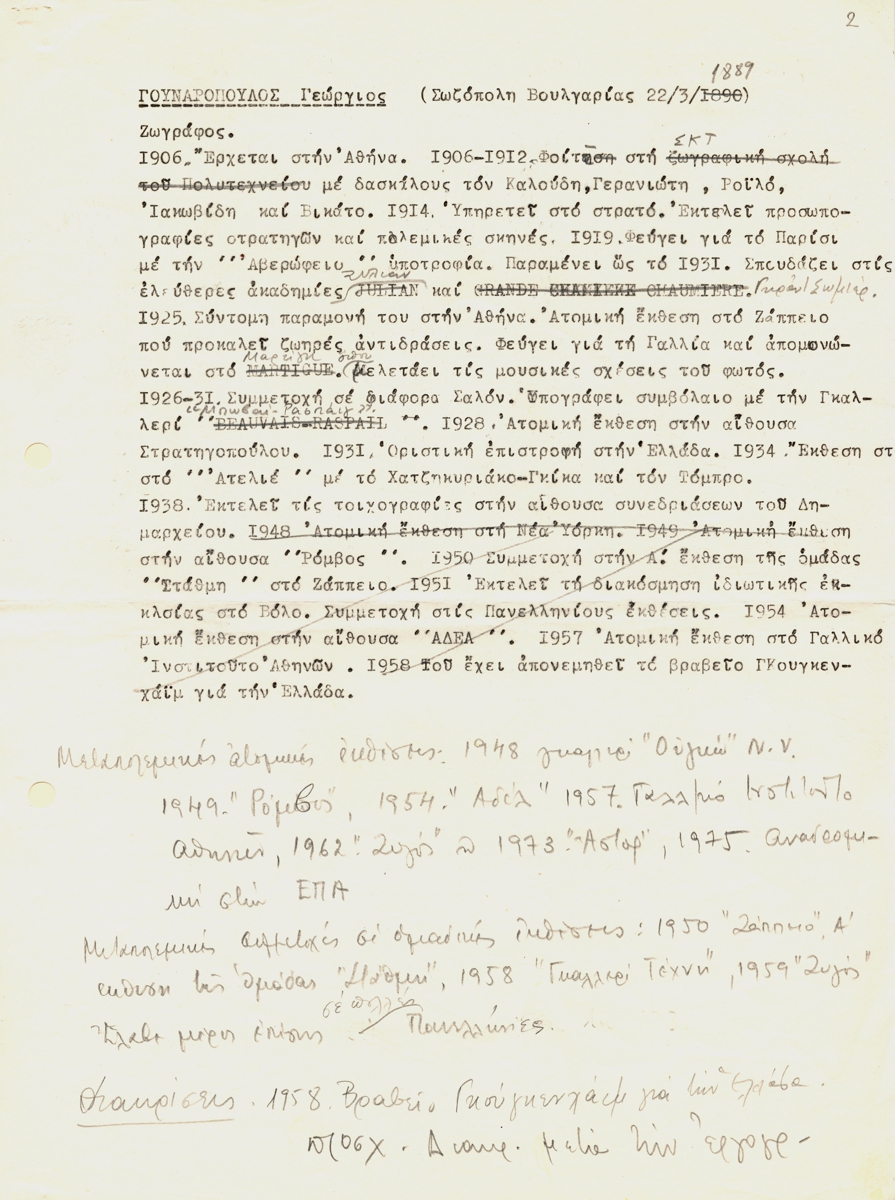 2
1889
ΓΟΥΝΑΡΟΠΟΥΛΟΣ Γεώργιος (Σωζόπολη Βουλγαρίας 22/3/1890)
Ζωγράφος.
ΣΚΤ
1906. Ἔρχεται στήν Ἀθήνα. 1906-1912. Φοίτηση στή ζωγραφική σχολή
τοῦ Πολυτεχνείου μέ δασκάλους τόν Καλούδη, Γερανιώτη , Ροϊλό,
Ἰακωβίδη καί Βικάτο. 1914. Ὑπηρετεῖ στό στρατό. Ἐκτελεῖ προσωπο-
γραφίες στρατηγῶν καί πολεμικές σκηνές. 1919. Φεύγει γιά τό Παρίσι
μέ τήν ''Ἀβερώφειο '' ὑποτροφία. Παραμένει ὥς τό 1931. Σπουδάζει στίς
Ζυλιάν
ἐλεύθερες ἀκαδημίες JULIAN καί GRANDE CHAUMIERE. Γκράντ Σωμιέρ.
1925. Σύντομη παραμονή του στήν Ἀθήνα. Ἀτομική ἔκθεση στό Ζάππειο
πού προκαλεῖ ζωηρές ἀντιδράσεις. Φεύγει γιά τή Γαλλία καί ἀπομονώ-
Μαρτίγκ ὅπου
νεται στό MARTIGUE. Μελετάει τίς μουσικές σχέσεις τοῦ φωτός.
1926-31. Συμμετοχή σέ διάφορα Σαλόν. Ὑπογράφει συμβόλαιο μέ τήν Γκαλ-
Μπωβαί-Ρασπάιγ
λερί ''BEAUVAIS-RASPAIL ''. 1928. Ἀτομική ἔκθεση στήν αἴθουσα
Στρατηγοπούλου. 1931. Ὁριστική ἐπιστροφή στήν Ἑλλάδα. 1934 . Ἔκθεση στ
στό ''Ἀτελιέ '' μέ τό Χατζηκυριάκο-Γκίκα καί τόν Τόμπρο.
1938. Ἐκτελεῖ τίς τοιχογραφίες στήν αἴθουσα συνεδριάσεων τοῦ Δη-
μαρχείου. 1948 Ἀτομική ἔκθεση στή Νέα Ὑόρκη. 1949 Ἀτομική ἔκθεση
στήν αἴθουσα ''Ρόμβος ''. 1950 Συμμετοχή στήν Α΄ ἔκθεση τῆς ὁμάδας
''Στάθμη '' στό Ζάππειο. 1951 Ἐκτελεῖ τή διακόσμηση ἰδιωτικῆς ἐκ-
κλσίας στό Βόλο. Συμμετοχή στίς Πανελληνίους ἐκθέσεις. 1954 Ἀτο-
μική ἔκθεση στήν αἴθουσα ''ΑΔΕΛ ''. 1957 Ἀτομική ἔκθεση στό Γαλλικό
Ἰνστιτοῦτο Ἀθηνῶν . 1958 Τοῦ ἔχει ἀπονεμηθεῖ τό βραβεῖο Γκουγκεν-
χάϊμ γιά τήν Ἑλλάδα.
Μεταπολεμικές ἀτομικές ἐκθέσεις: 1948 γκαλερί "Οὐγκώ" N.Y.
1949. "Ρόμβος", 1954. "Αδέλ" 1957. Γαλλικό Ινστιτοῦτο
Αθηνῶν, 1962 "Ζυγός" 1973 "Αστορ", 1975. Αναδρομι-
κή στήν ΕΠΑ
Μεταπολεμικές συμμετοχές σέ ὁμαδικές ἐκθέσεις: 1950 "Ζάππειο", Α'
εκθεση τῆς ὁμάδας "Στάθμη", 1958 "Γκαλλερί Τέχνη", 1959 "Ζυγός"
σέ πολλές
Ἔλαβε μέρος ἐπίσης Πανελλήνιες.
Διακρίσεις. 1958. Βραβείο Γκούγκενχάϊμ γιά τήν Ελλάδα.
προσχ. Διακρ. μετά τήν ἐργογρ-